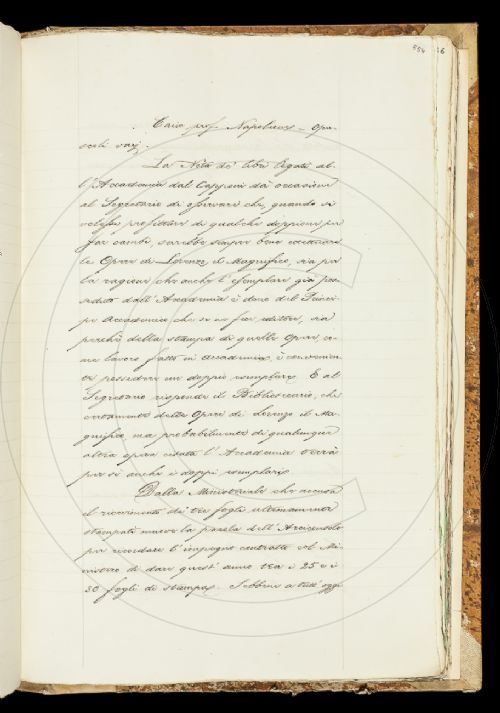 954 36
Caio prof. Napoleone – Opu-
scoli varj.
La Nota de' libri legati al-
l'Accademia dal Capponi dà occasione
al Segretario di osservare che, quando si
volesse profittare di qualche doppione per
far cambi, sarebbe sempre bene eccettuare
le Opere di Lorenzo il Magnifico, sia per
la ragione che anche l'esemplare già pos-
seduto dall'Accademia è dono del Princi-
pe Accademico che se ne fece editore, sia
perchè della stampa di quelle Opere, co-
me lavoro fatto in Accademia, è convenien-
te possedere un doppio esemplare. E al
Segretario risponde il Bibliotecario, che
certamente delle Opere di Lorenzo il Ma-
gnifico, ma probabilmente di qualunque
altra opera citata l'Accademia terrà
per sè anche i doppi esemplari.
Dalla Ministeriale che accusa
il ricevimento dei tre fogli ultimamente
stampati muove la parola dell'Arciconsolo
per ricordare l'impegno contratto col Mi-
nistero di dare quest'anno tra i 25 e i
30 fogli di stampa. Sebbene a tutt'oggi